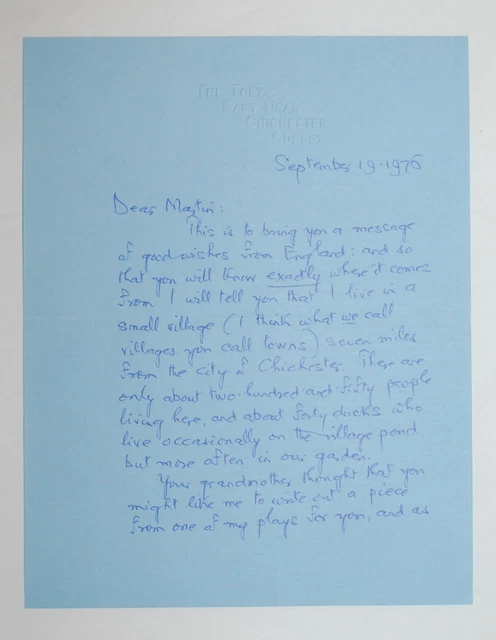 THE TOFT
EAST DEAN
CHICHESTER
SUSSEX
September 19. 1976
Dear Martin:
This is to bring you a message
of good wishes from England: and so
that you will know exactly where it comes
from I will tell you that I live in a
small village (I think what we call
villages you call towns) seven miles
from the city of Chichester. There are
only about two-hundred-and-fifty people
living here, and about forty ducks who
live occasionally on the village pond
but more often in our garden.
Your grandmother thought that you
might like me to write out a piece
from one of my plays for you, and as